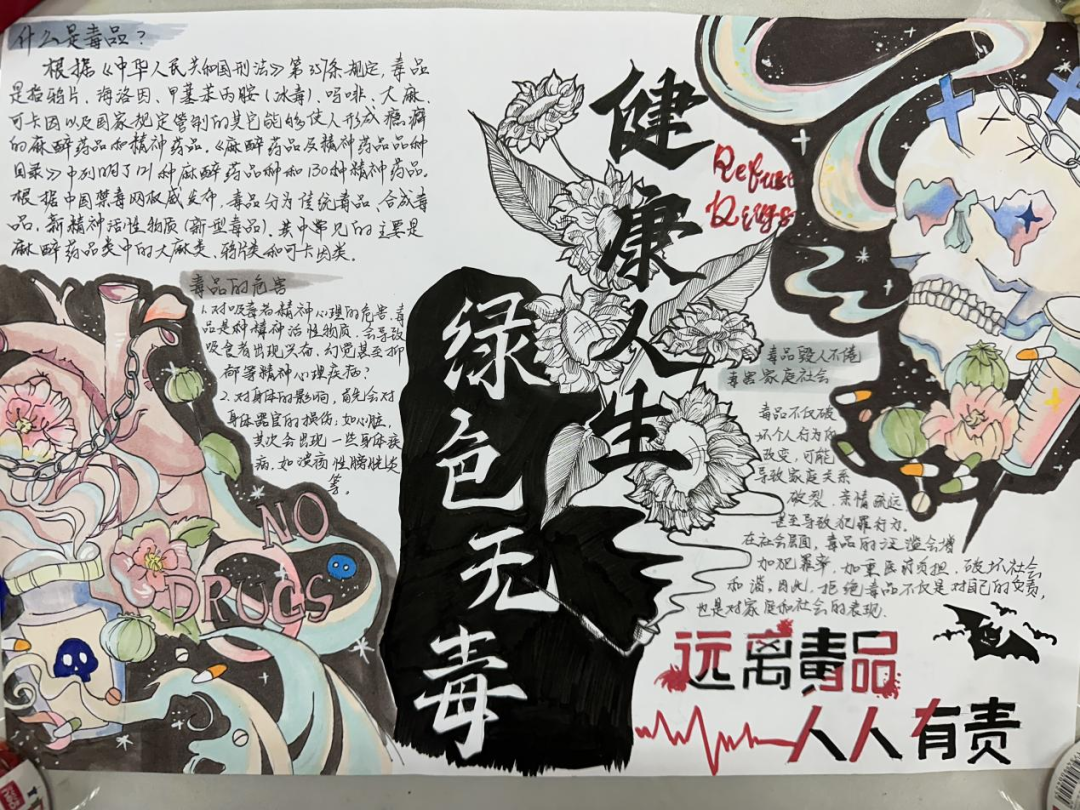 什么是毒品？
根据《中华人民共和国刑法》第357条规定，毒品
是指鸦片、海洛因、甲基苯丙胺(冰毒)、吗啡、大麻、
可卡因以及国家规定管制的其它能够使人形成瘾癖
的麻醉药品和精神药品。《麻醉药品及精神药品品种
目录》中列明了121种麻醉药品种和130种精神药品。
根据中国禁毒网权威发布，毒品分为传统毒品、合成毒
品、新精神活性物质(新型毒品)。其中常见的主要是
麻醉药品类中的大麻类、鸦片类和可卡因类。
毒品的危害
1.对吸毒者精神心理的危害，毒
品是种精神活性物质，会导致
吸食者出现兴奋，幻觉甚至抑
郁等精神心理疾病？
2.对身体的影响，首先会对
身体器官的损伤，如心脏，
其次会出现一些身体疾
病，如溃疡性膀胱炎
等。
NO
DRUGS
绿色无毒
健康人生
Refuse
Drugs
毒品毁人不倦
毒害家庭社会
毒品不仅破
坏个人行为的
改变，可能
导致家庭关系
破裂、亲情疏远，
甚至导致犯罪行为。
在社会层面，毒品的泛滥会增
加犯罪率，加重医疗负担，破坏社会
和谐，因此，拒绝毒品不仅是对自己的负责，
也是对家庭和社会的表现.
远离毒品
人人有责